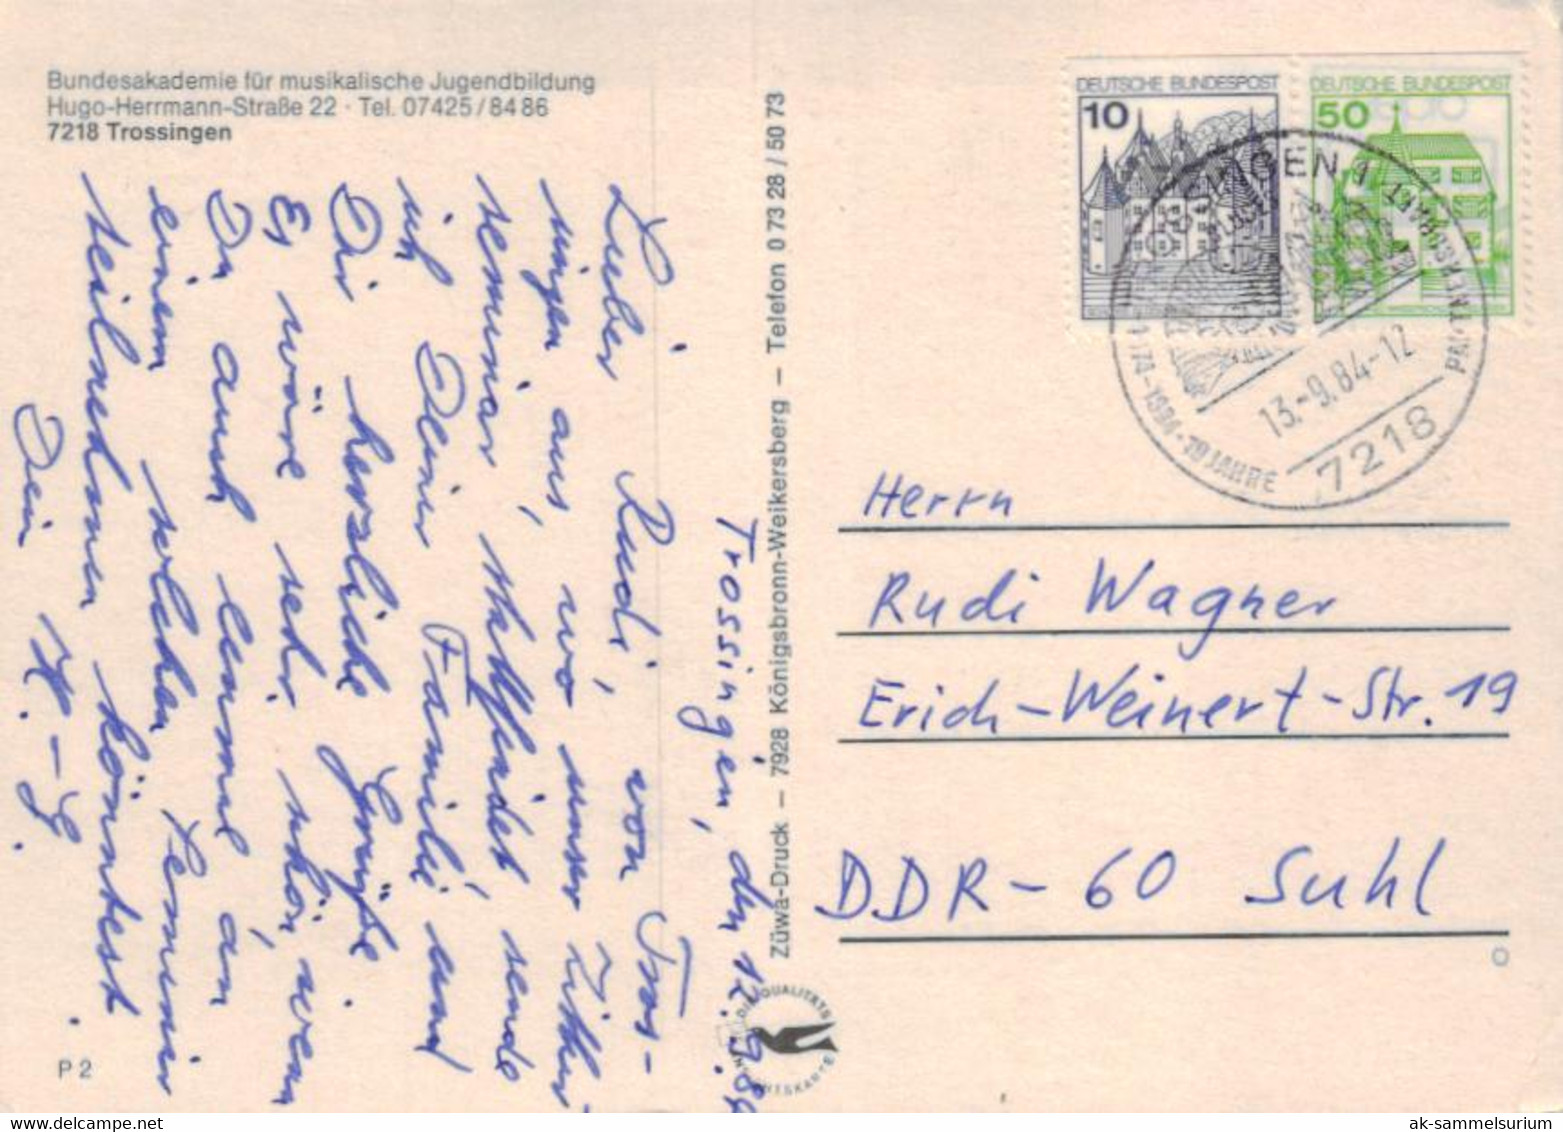 Bundesakademie für musikalische Jugendbildung
Hugo-Herrmann-Straße 22 · Tel. 07425/8486
7218 Trossingen
Trossingen, den 12.9.84
Lieber Rudi, von Tros-
singen aus, wo unser Zither-
seminar stattfindet, sende
ich Deiner Familie und
Dir herzliche Grüße.
Es wäre sehr schön, wenn
Du auch einmal an
einem solchen Seminar
teilnehmen könntest.
Dein H.-G.
P 2
Züwa-Druck – 7928 Königsbronn-Weikersberg – Telefon 0 73 28 / 50 73
DIE QUALITÄTS
ANSICHTSKARTE
DEUTSCHE BUNDESPOST
10
DEUTSCHE BUNDESPOST
50
TROSSINGEN 1
PARTNERSCHAFT
1974-1984 · 10 JAHRE
13.-9.84-12
7218
Herrn
Rudi Wagner
Erich-Weinert-Str. 19
DDR-60 Suhl
ak-sammelsurium